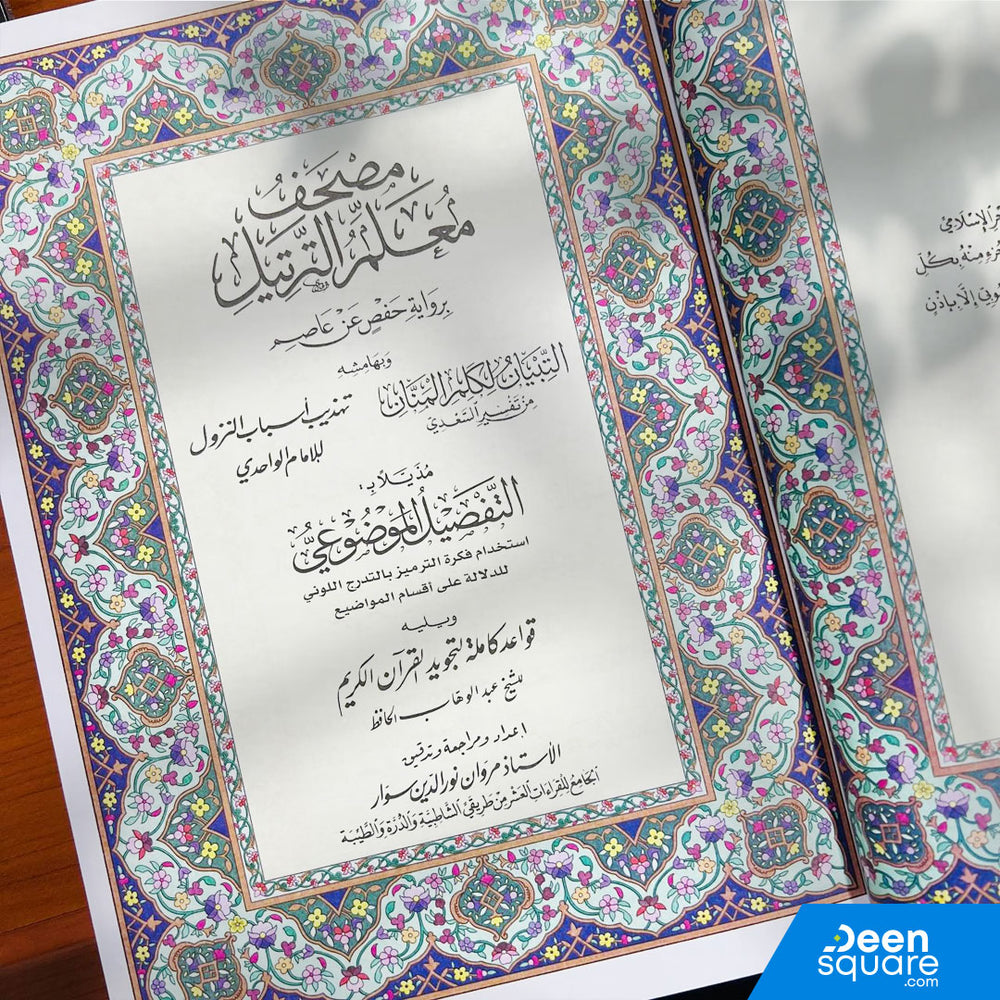 مُصْحَفُ
مُعَلِّمُ التَّرْتِيلِ
بِرِوَايَةِ حَفْصٍ عَنْ عَاصِمٍ
وَبِهَامِشِهِ
التِّبْيَانُ لِكَلِمِ الْمَنَّانِ
مِنْ تَفْسِيرِ السَّعْدِيّ
تهذيب أسباب النزول
للإمام الواحدي
مُذَيَّلاً بِـ:
التَّفْصِيلُ الْمَوْضُوعِيُّ
استخدام فكرة الترميز بالتدرج اللوني
للدلالة على أقسام المواضيع
ويليه
قواعد كاملة لتجويد القرآن الكريم
للشيخ عبد الوهاب الحافظ
إعداد ومراجعة وتدقيق
الأستاذ مروان نور الدين سوار
الجَامِعُ لِلْقِرَاءَاتِ العَشْرِ مِنْ طَرِيقَيِ الشَّاطِبِيَّةِ وَالدُّرَّةِ وَالطَّيِّبَةِ
الإِسْلَامِيّ
مِنْهُ بِكُلِّ
إِلَّا بِإِذْنٍ
Deen
square
.com